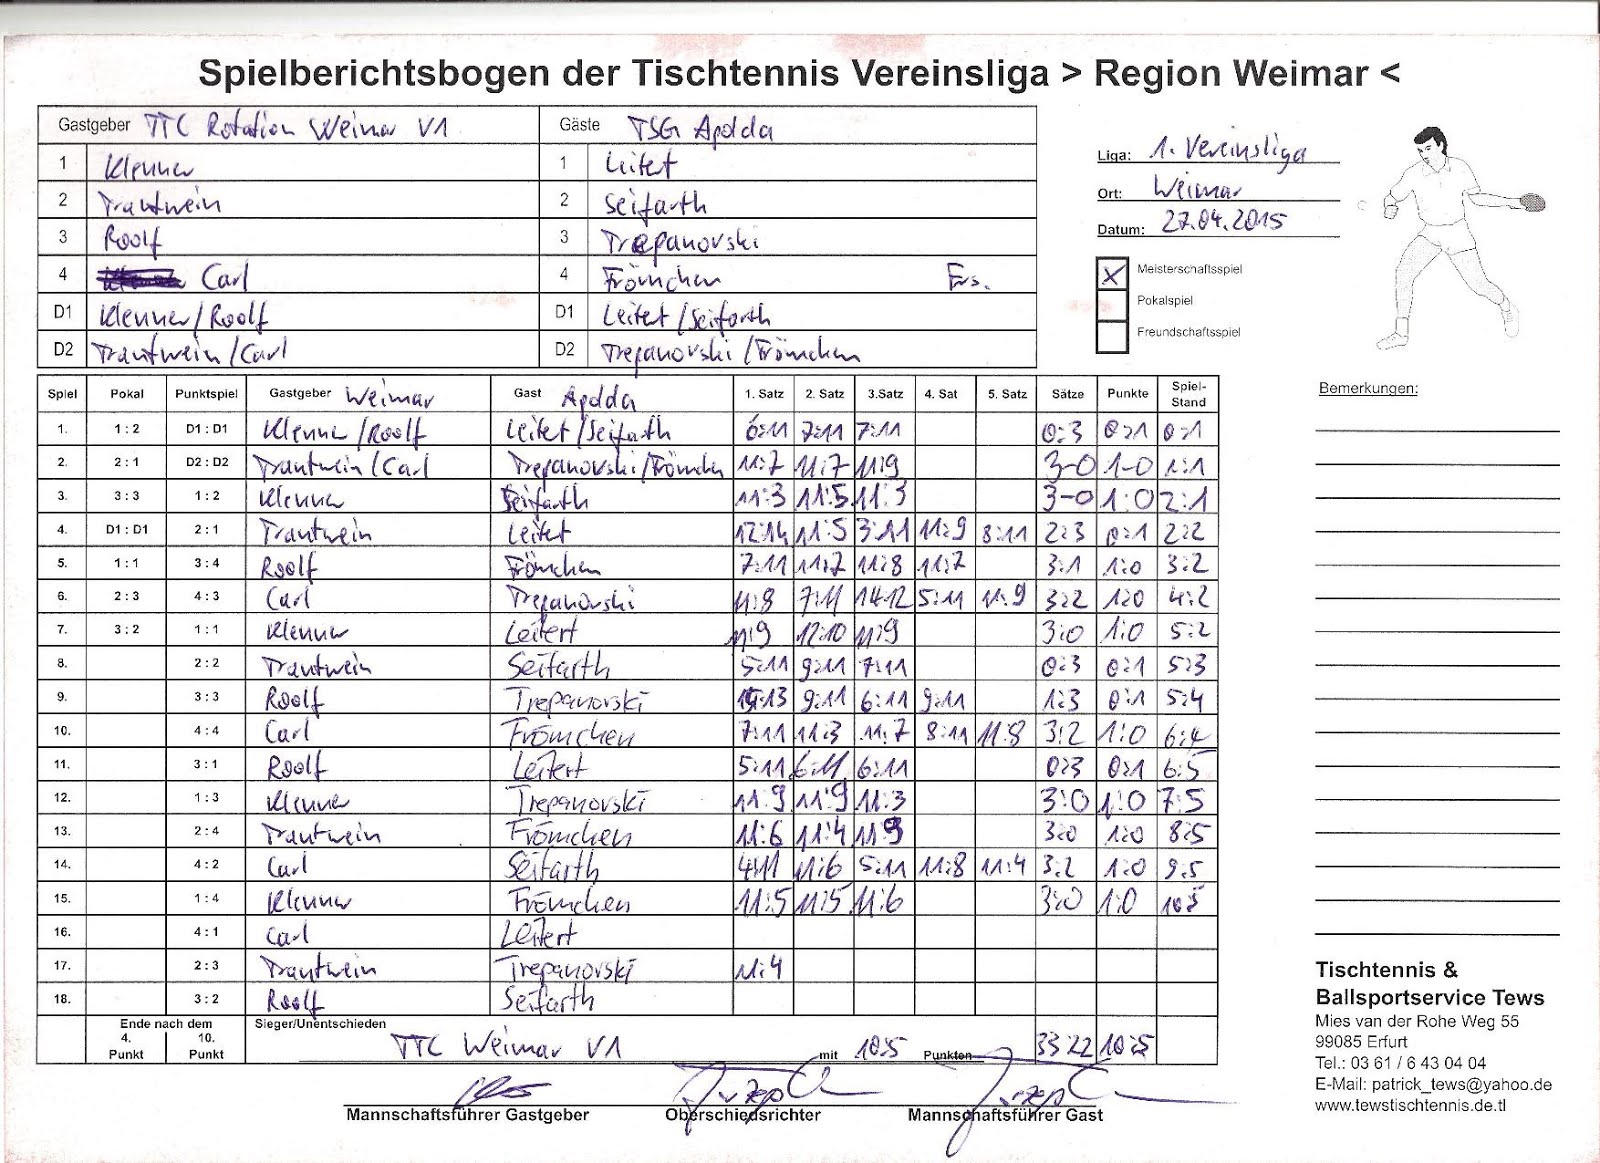 Spielberichtsbogen der Tischtennis Vereinsliga > Region Weimar <
Gastgeber TTC Rotation Weimar V1 Gäste TSG Apolda
1 Klenner 1 Leitert
2 Trautwein 2 Seifarth
3 Roolf 3 Trepanovski
4 Carl 4 Frömchen Ers.
D1 Klenner/Roolf D1 Leitert/Seifarth
D2 Trautwein/Carl D2 Trepanovski/Frömchen
Liga: 1. Vereinsliga
Ort: Weimar
Datum: 27.04.2015
X Meisterschaftsspiel
Pokalspiel
Freundschaftsspiel
Spiel Pokal Punktspiel Gastgeber Weimar Gast Apolda 1. Satz 2. Satz 3.Satz 4. Sat 5. Satz Sätze Punkte Spiel-Stand
1. 1 : 2 D1 : D1 Klenner/Roolf Leitert/Seifarth 6:11 7:11 7:11 0:3 0:1 0:1
2. 2 : 1 D2 : D2 Trautwein/Carl Trepanovski/Frömchen 11:7 11:7 11:9 3-0 1-0 1:1
3. 3 : 3 1 : 2 Klenner Seifarth 11:3 11:5 11:3 3-0 1:0 2:1
4. D1 : D1 2 : 1 Trautwein Leitert 12:14 11:5 3:11 11:9 8:11 2:3 0:1 2:2
5. 1 : 1 3 : 4 Roolf Frömchen 7:11 11:7 11:8 11:7 3:1 1:0 3:2
6. 2 : 3 4 : 3 Carl Trepanovski 11:8 7:11 14:12 5:11 11:9 3:2 1:0 4:2
7. 3 : 2 1 : 1 Klenner Leitert 11:9 12:10 11:9 3:0 1:0 5:2
8. 2 : 2 Trautwein Seifarth 5:11 9:11 7:11 0:3 0:1 5:3
9. 3 : 3 Roolf Trepanovski 15:13 9:11 6:11 9:11 1:3 0:1 5:4
10. 4 : 4 Carl Frömchen 7:11 11:3 11:7 8:11 11:8 3:2 1:0 6:4
11. 3 : 1 Roolf Leitert 5:11 6:11 6:11 0:3 0:1 6:5
12. 1 : 3 Klenner Trepanovski 11:9 11:9 11:3 3:0 1:0 7:5
13. 2 : 4 Trautwein Frömchen 11:6 11:4 11:9 3:0 1:0 8:5
14. 4 : 2 Carl Seifarth 4:11 11:6 5:11 11:8 11:4 3:2 1:0 9:5
15. 1 : 4 Klenner Frömchen 11:5 11:5 11:6 3:0 1:0 10:5
16. 4 : 1 Carl Leitert
17. 2 : 3 Trautwein Trepanovski 11:4
18. 3 : 2 Roolf Seifarth
Ende nach dem 4. Punkt 10. Punkt Sieger/Unentschieden TTC Weimar V1 mit 10:5 Punkten 33:22 10:5
Mannschaftsführer Gastgeber Oberschiedsrichter Mannschaftsführer Gast
Bemerkungen:
Tischtennis &
Ballsportservice Tews
Mies van der Rohe Weg 55
99085 Erfurt
Tel.: 03 61 / 6 43 04 04
E-Mail: patrick_tews@yahoo.de
www.tewstischtennis.de.tl